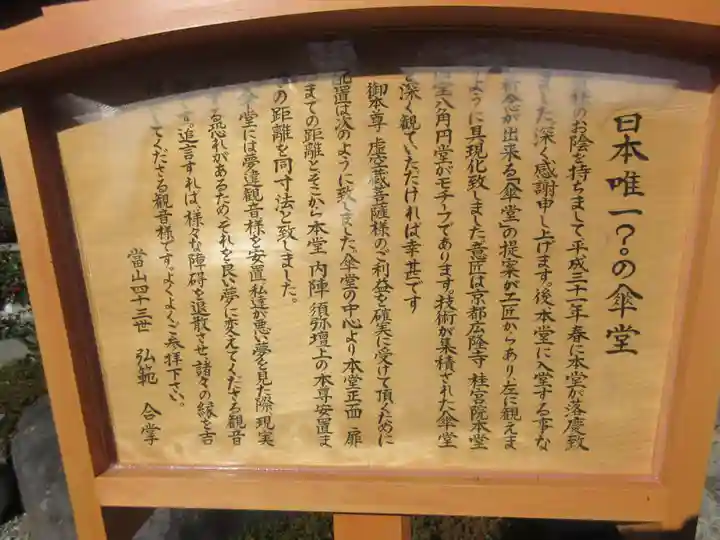 日本唯一?の傘堂
のお陰を持ちまして平成三十一年春に本堂が落慶致
ました。深く感謝申し上げます。後、本堂に入堂する事な
祈念が出来る「傘堂」の提案が工匠からあり、左に観えま
ように具現化致しました。意匠は京都広隆寺 桂宮院本堂
堂八角円堂がモチーフであります。技術が集積された傘堂
と深く観ていただければ幸甚です
御本尊 虚空蔵菩薩様のご利益を確実に受けて頂くために
配置は次のように致しました。傘堂の中心より本堂正面 扉
までの距離とそこから本堂 内陣 須弥壇上の本尊安置ま
の距離を同寸法と致しました。
堂には夢違観音様を安置 私達が悪い夢を見た際、現実
る恐れがあるため、それを良い夢に変えてくださる観音
す。追言すれば、様々な障碍を退散させ、諸々の縁を吉
してくださる観音様です。よくよくご参拝下さい。
當山四十三世 弘範 合掌